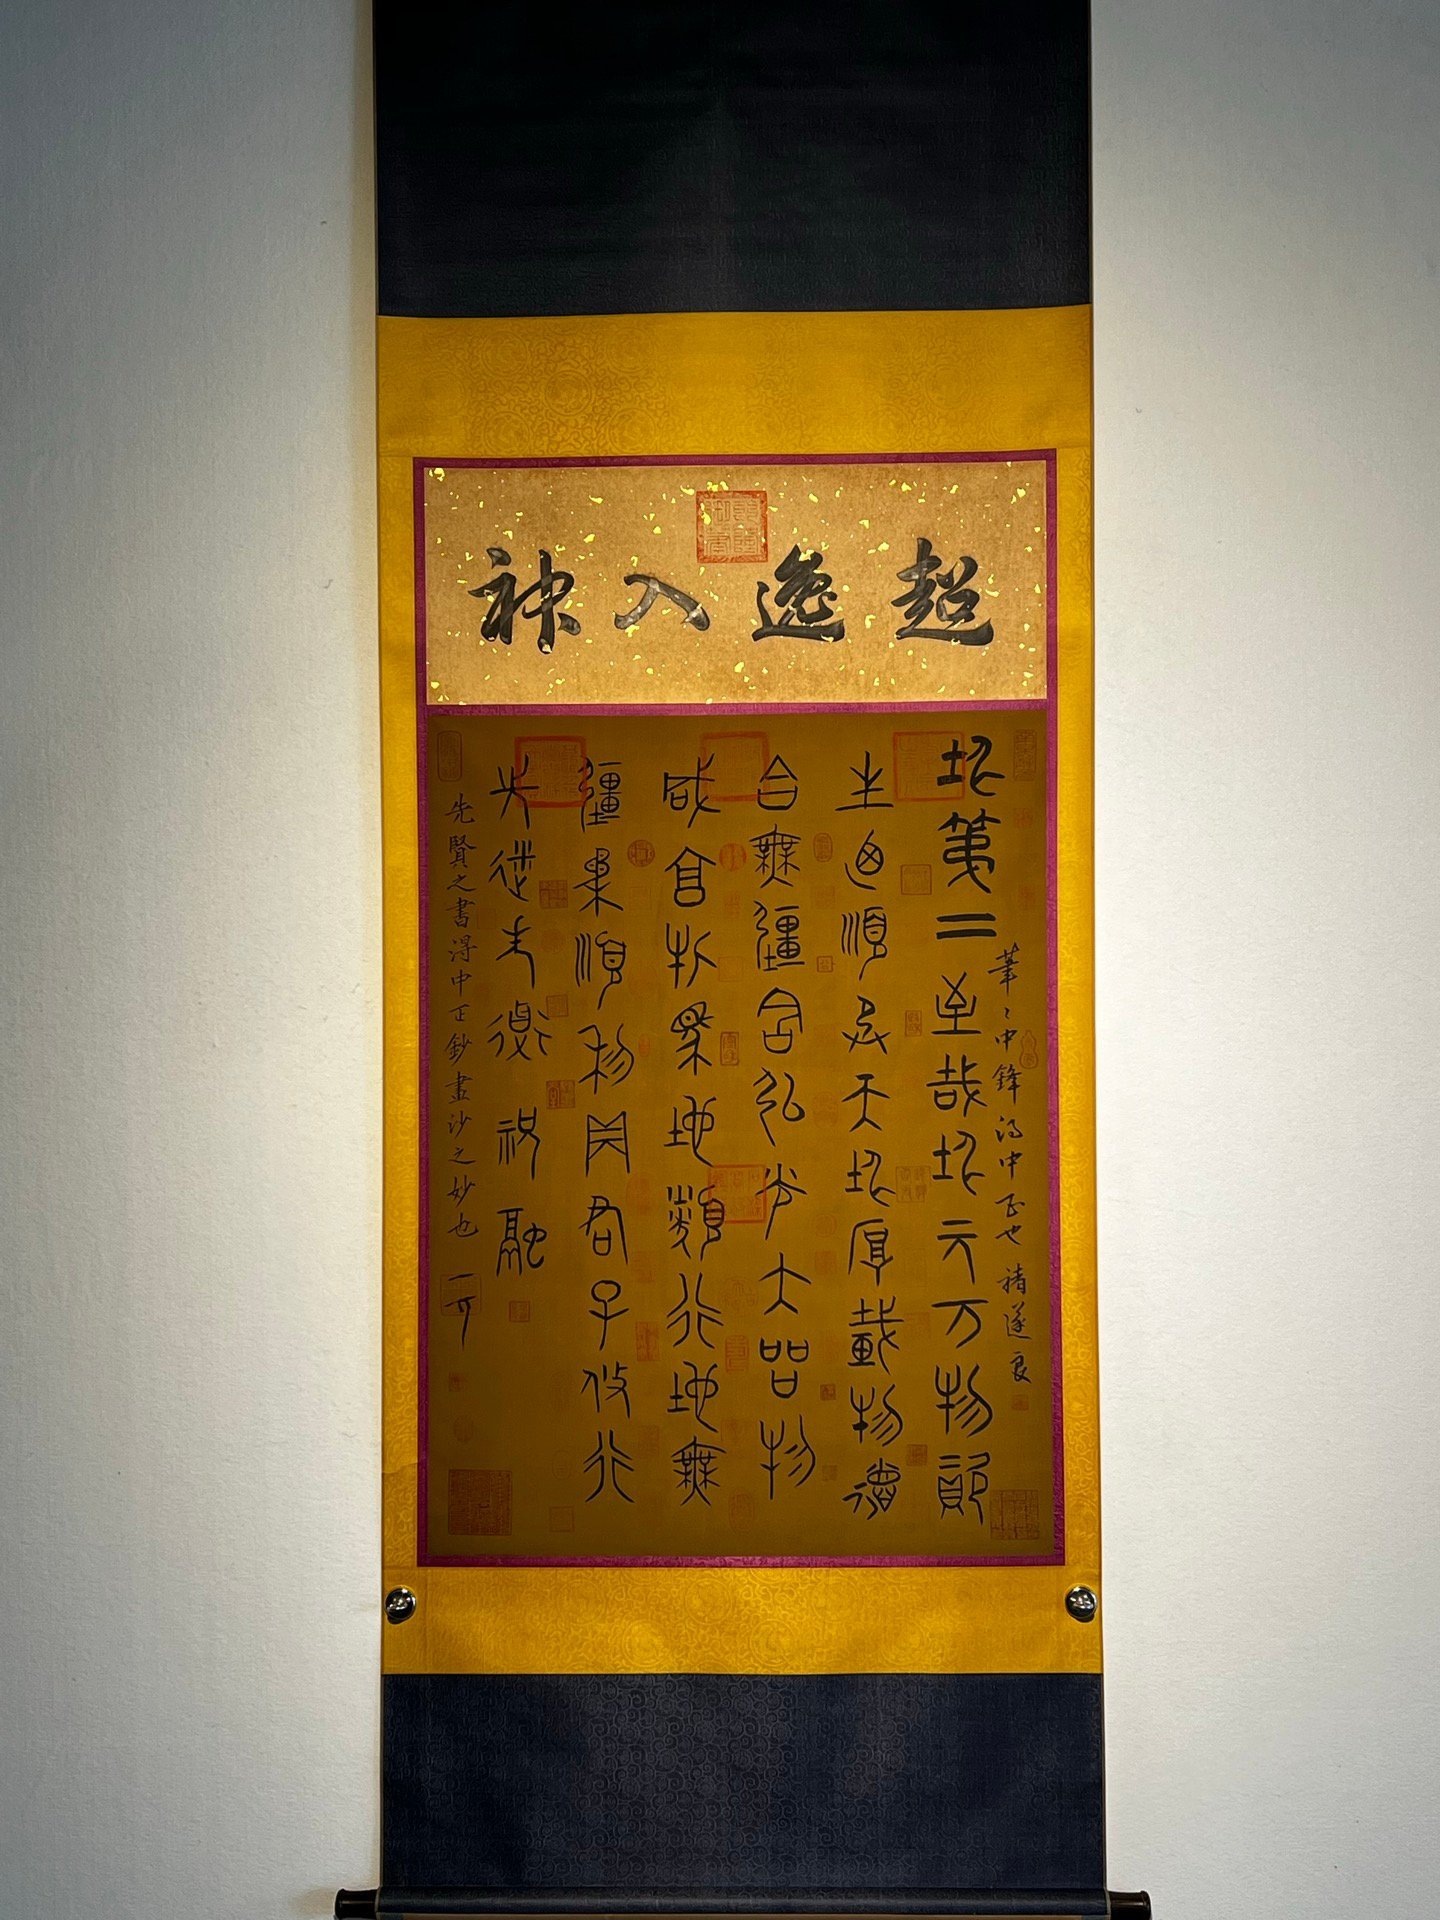 超逸入神
筆〻中鋒得中正也 褚遂良
坤第二 至哉坤元万物資
生迺順承天坤厚載物德
合無疆含弘光大品物
咸亨牝馬地類行地無
疆柔順利貞君子攸行
先迷失道 祝融
先賢之書得中正鈔畫沙之妙也